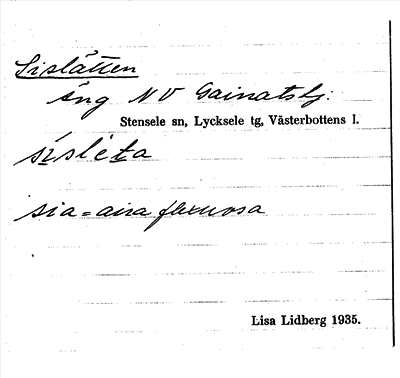 Sislätten
äng NV Gainatsbj:
Stensele sn, Lycksele tg, Västerbottens l.
sísle̍ta
sia = aira flexuosa
Lisa Lidberg 1935.